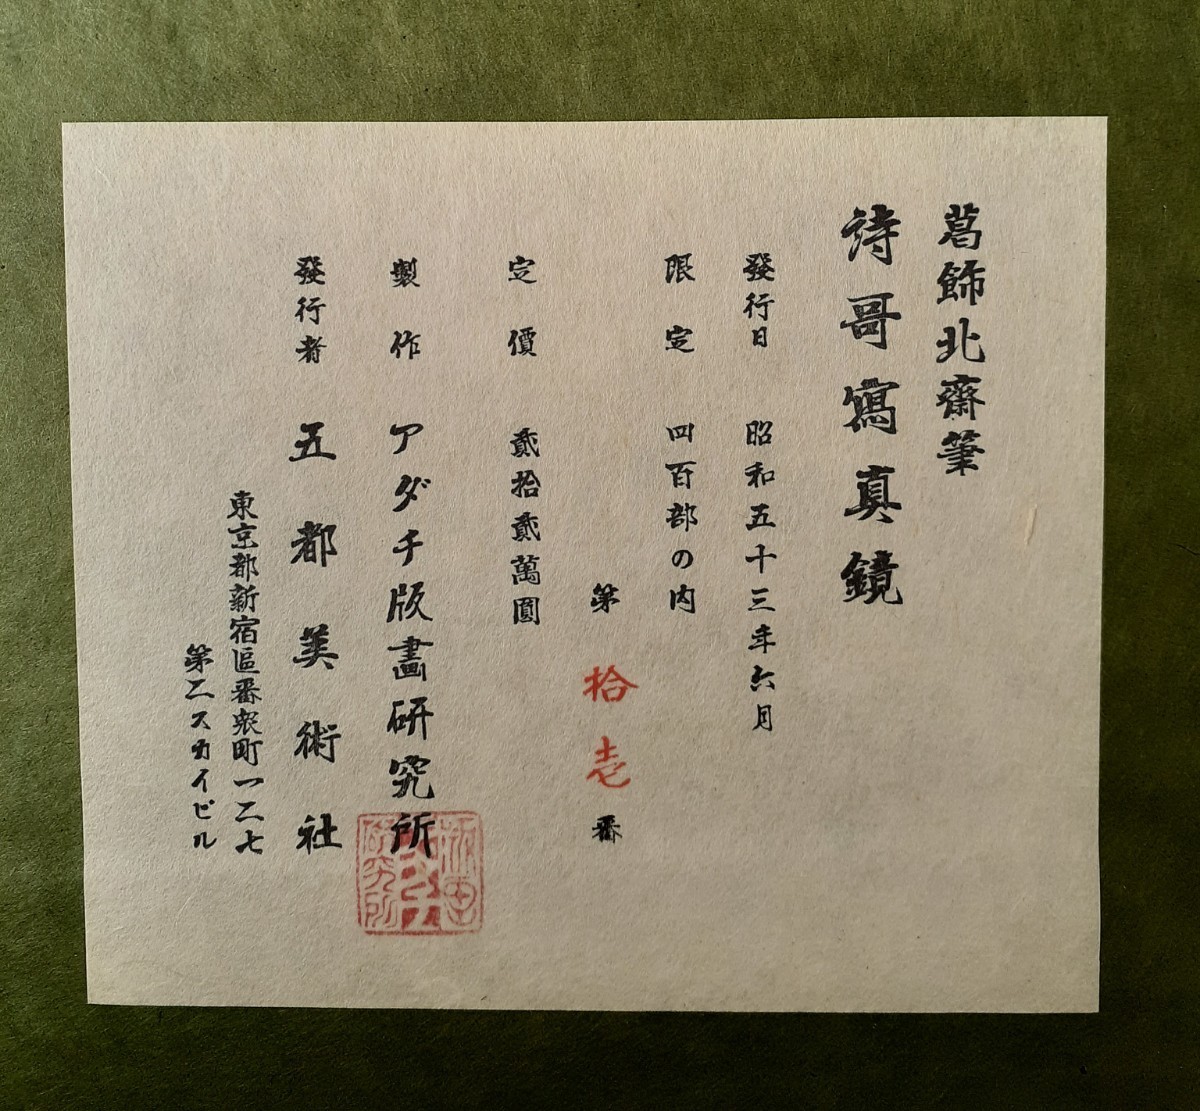 葛飾北齋筆
詩哥寫真鏡
發行日 昭和五十三年六月
限定 四百部の内
第 拾壱 番
定價 貳拾貳萬圓
製作 アダチ版畫研究所
發行者 五都美術社
東京都新宿區番衆町一二七
第二スカイビル